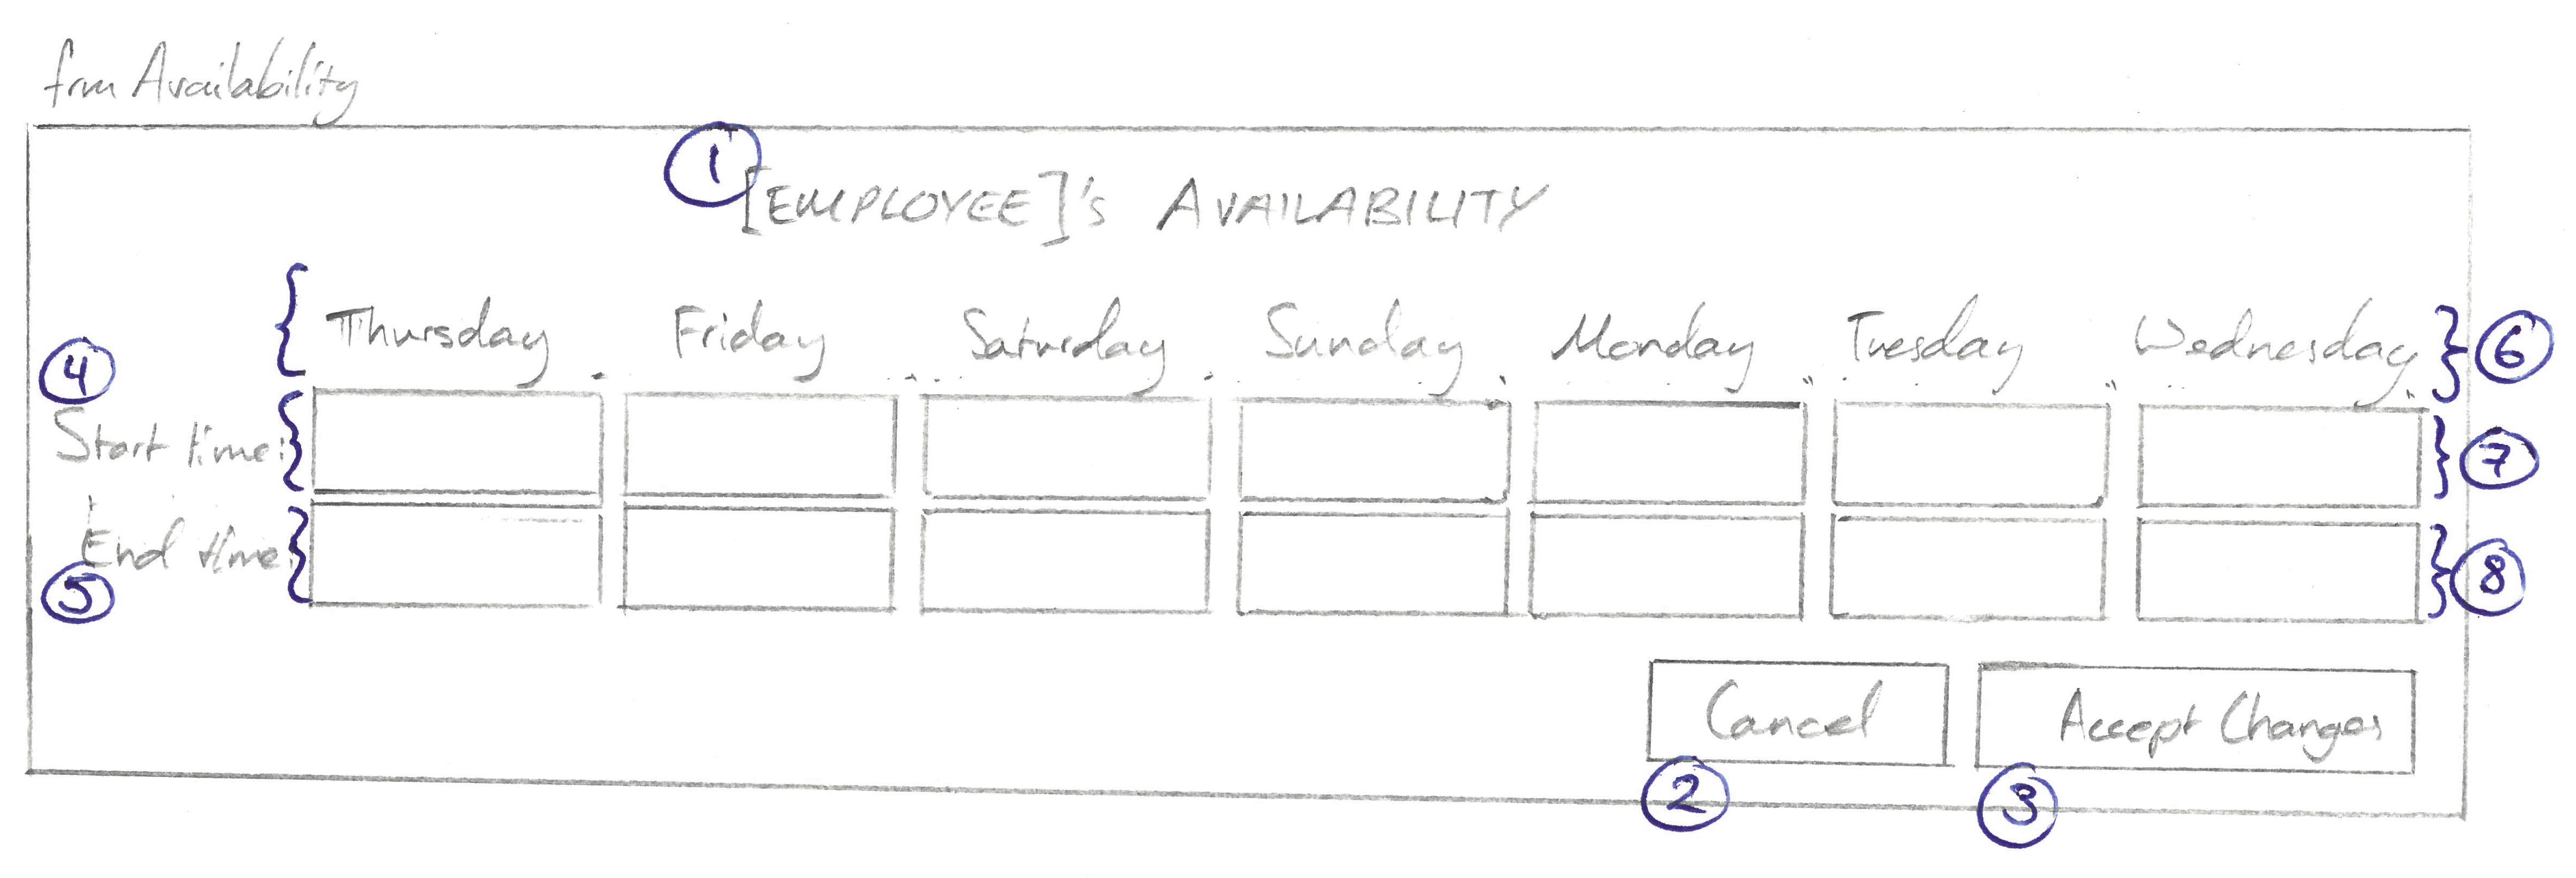 frm Availability
1
[EMPLOYEE]'s AVAILABILITY
Thursday Friday Saturday Sunday Monday Tuesday Wednesday 6
4
Start time: 7
End time: 8
5
Cancel Accept Changes
2 3